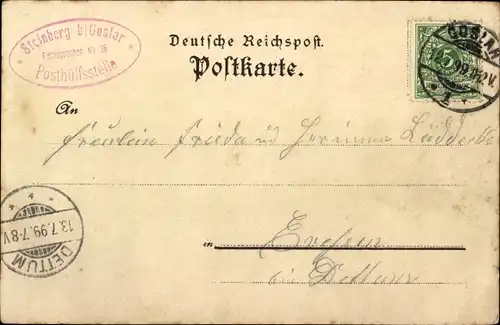 Steinberg b/Goslar
Fernsprecher No 36
Posthülfsstelle
Deutsche Reichspost.
Postkarte.
GOSLAR
5
An
Fräulein Frieda und Hermine
in
DETTUM
13.7.99.7-8V.
bei Dettum